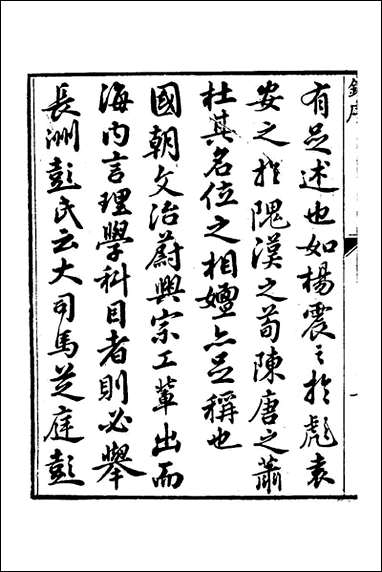 有足述也如楊震之於彪袁
安之於隗漢之荀陳唐之蕭
杜其名位之相嬗亦足稱也
國朝文治蔚興宗工輩出而
海内言理學科目者則必舉
長洲彭氏云大司馬芝庭彭